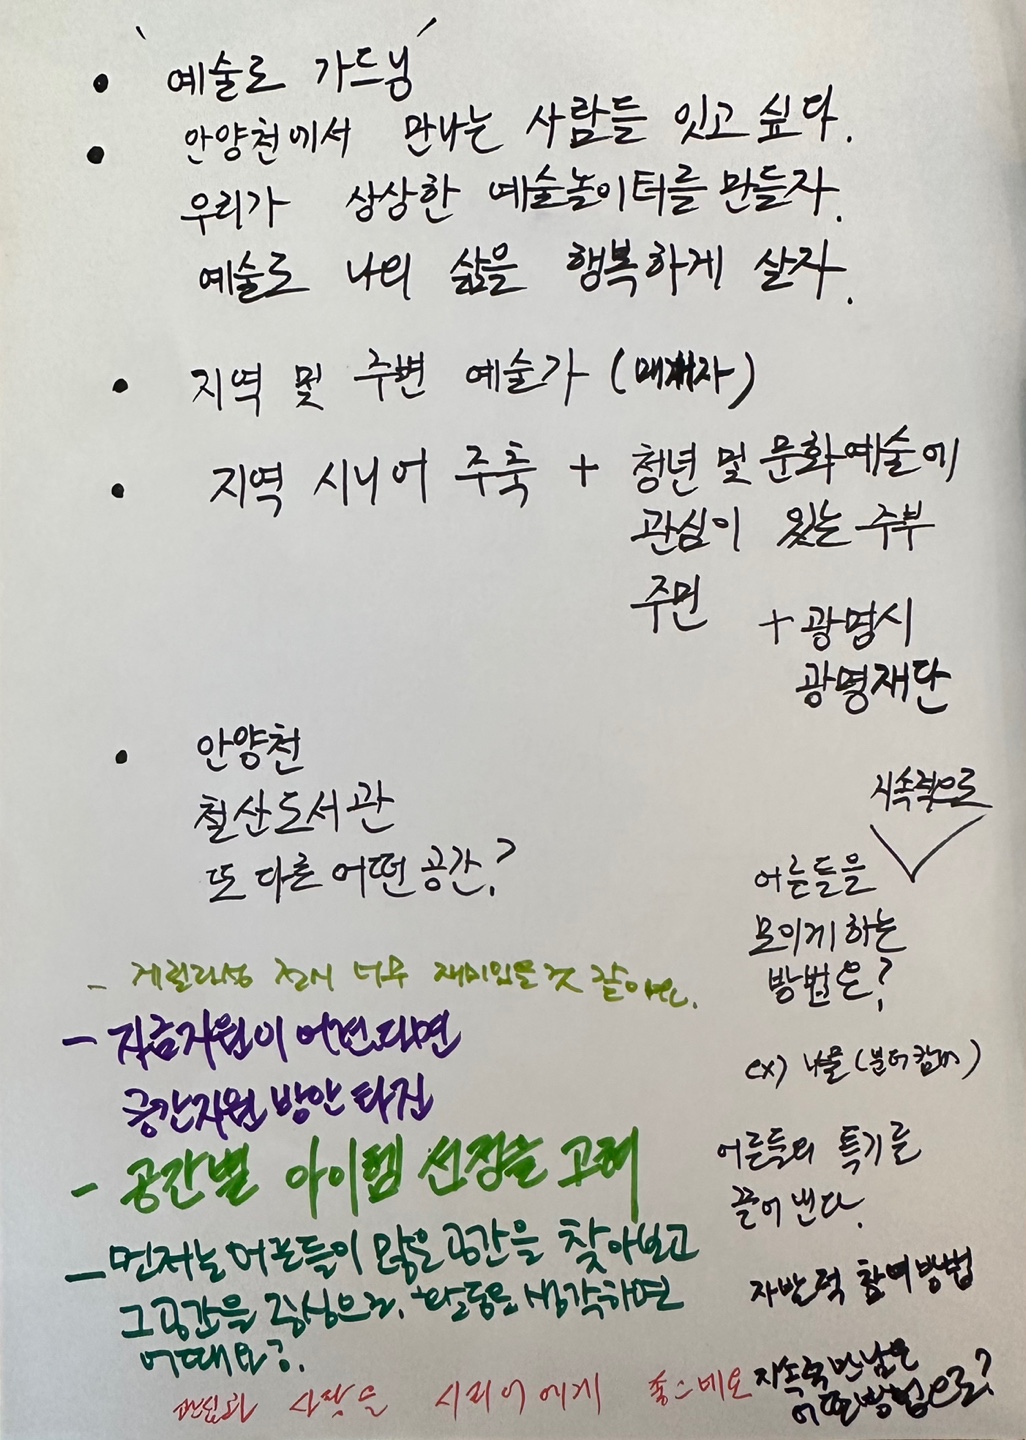 • '예술로 가드닝'
• 안양천에서 만나는 사람들 잇고 싶다.
우리가 상상한 예술놀이터를 만들자.
예술로 나의 삶을 행복하게 살자.
• 지역 및 주변 예술가 (매개자)
• 지역 시니어 주축 + 청년 및 문화예술에
관심이 있는 주부
주민
+ 광명시
광명재단
• 안양천
철산도서관
또 다른 어떤 공간?
지속적으로
어른들을
모이게 하는
방법은?
ex) 나물 (분더캄머)
어른들의 특기를
끌어 낸다.
자발적 참여방법
지속적 만남은
어떤방법으로?
- 게릴라성 전시 너무 재미있을것 같아요.
- 자금지원이 어렵다면
공간지원 방안 타진
- 공간별 아이템 선정을 고려
- 먼저는 어르신들이 많은 공간을 찾아보고
그 공간을 중심으로 활동을 생각하면
어때요?
관심과 사랑을 시니어에게